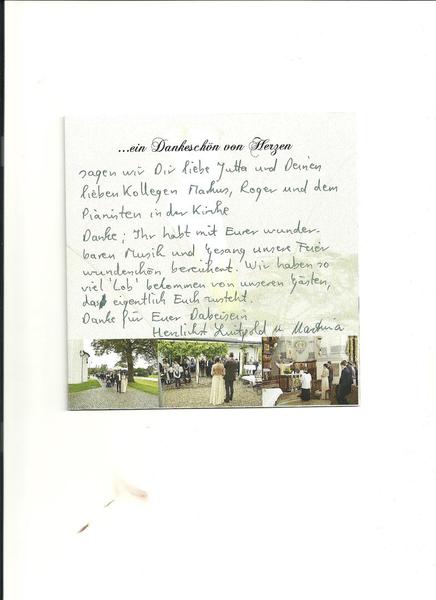 ...ein Dankeschön von Herzen
sagen wir Dir liebe Jutta und Deinen
lieben Kollegen Markus, Roger und dem
Pianisten in der Kirche
Danke, Ihr habt mit Eurer wunder-
baren Musik und Gesang unsere Feier
wunderschön bereichert. Wir haben so
viel 'Lob' bekommen von unseren Gästen,
das eigentlich Euch zusteht.
Danke für Euer Dabeisein
Herzlichst Luitpold u. Martina